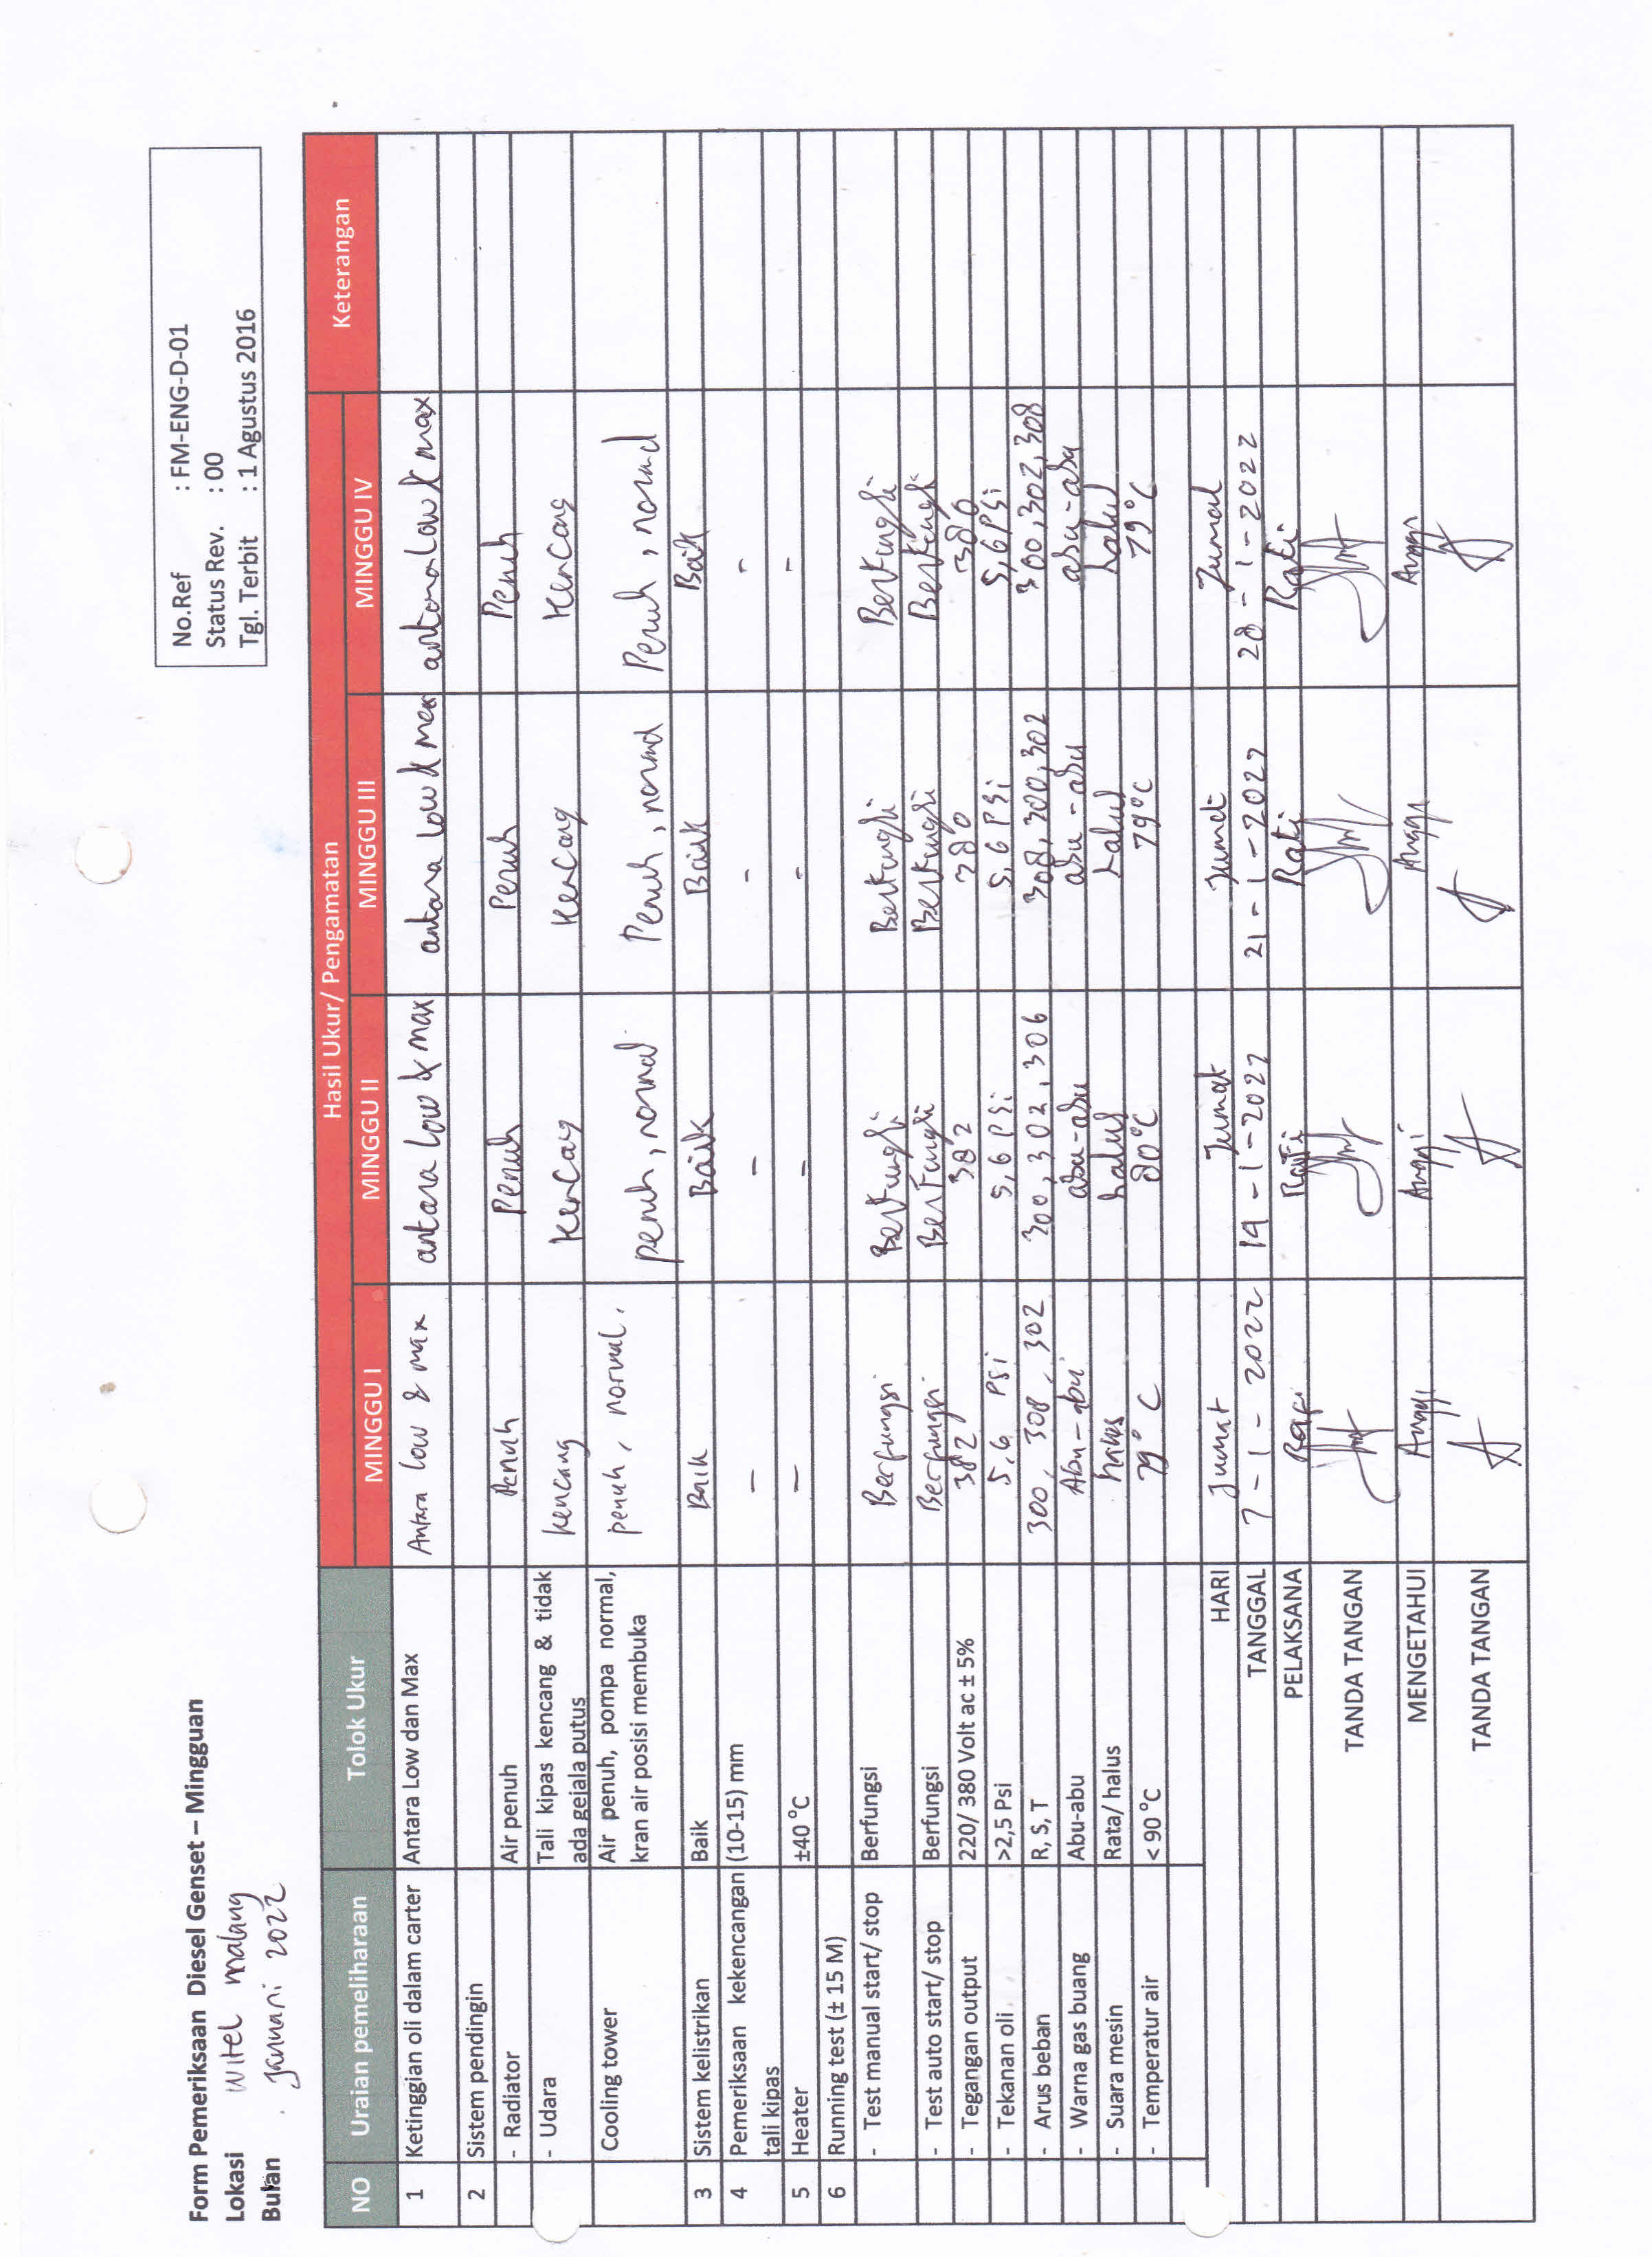 No.Ref : FM-ENG-D-01
Status Rev. : 00
Tgl. Terbit : 1 Agustus 2016
Form Pemeriksaan Diesel Genset – Mingguan
Lokasi Witel malang
Bulan . Januari 2022
NO Uraian pemeliharaan Tolok Ukur Hasil Ukur/ Pengamatan Keterangan
MINGGU I MINGGU II MINGGU III MINGGU IV
1 Ketinggian oli dalam carter Antara Low dan Max Antara low & max antara low & max antara low & max antara low & max
2 Sistem pendingin
- Radiator Air penuh Penuh Penuh Penuh Penuh
- Udara Tali kipas kencang & tidak kencang kencang kencang kencang
ada gejala putus
Cooling tower Air penuh, pompa normal, penuh, normal. penuh, normal Penuh, normal Penuh, normal
kran air posisi membuka
3 Sistem kelistrikan Baik Baik Baik Baik Baik
4 Pemeriksaan kekencangan (10-15) mm – – – –
tali kipas
5 Heater ±40 °C – – – –
6 Running test (± 15 M)
- Test manual start/ stop Berfungsi Berfungsi Berfungsi Berfungsi Berfungsi
- Test auto start/ stop Berfungsi Berfungsi BerFungsi Berfungsi Berfungsi
- Tegangan output 220/ 380 Volt ac ± 5% 382 382 380 380
- Tekanan oli >2,5 Psi 5,6 Psi 5,6 PSi 5,6 PSi 5,6 PSi
- Arus beban R, S, T 300, 308, 302 300, 302, 306 308, 300, 302 300, 302, 308
- Warna gas buang Abu-abu Abu-abu abu-abu abu-abu abu-abu
- Suara mesin Rata/ halus halus halus halus halus
- Temperatur air < 90 °C 79°C 80°C 79°C 79°C
HARI Jumat Jumat Jumat Jumat
TANGGAL 7-1-2022 14-1-2022 21-1-2022 28-1-2022
PELAKSANA Rafi Rafi Rafi Rafi
TANDA TANGAN
MENGETAHUI Anggi Anggi Anggi Anggi
TANDA TANGAN